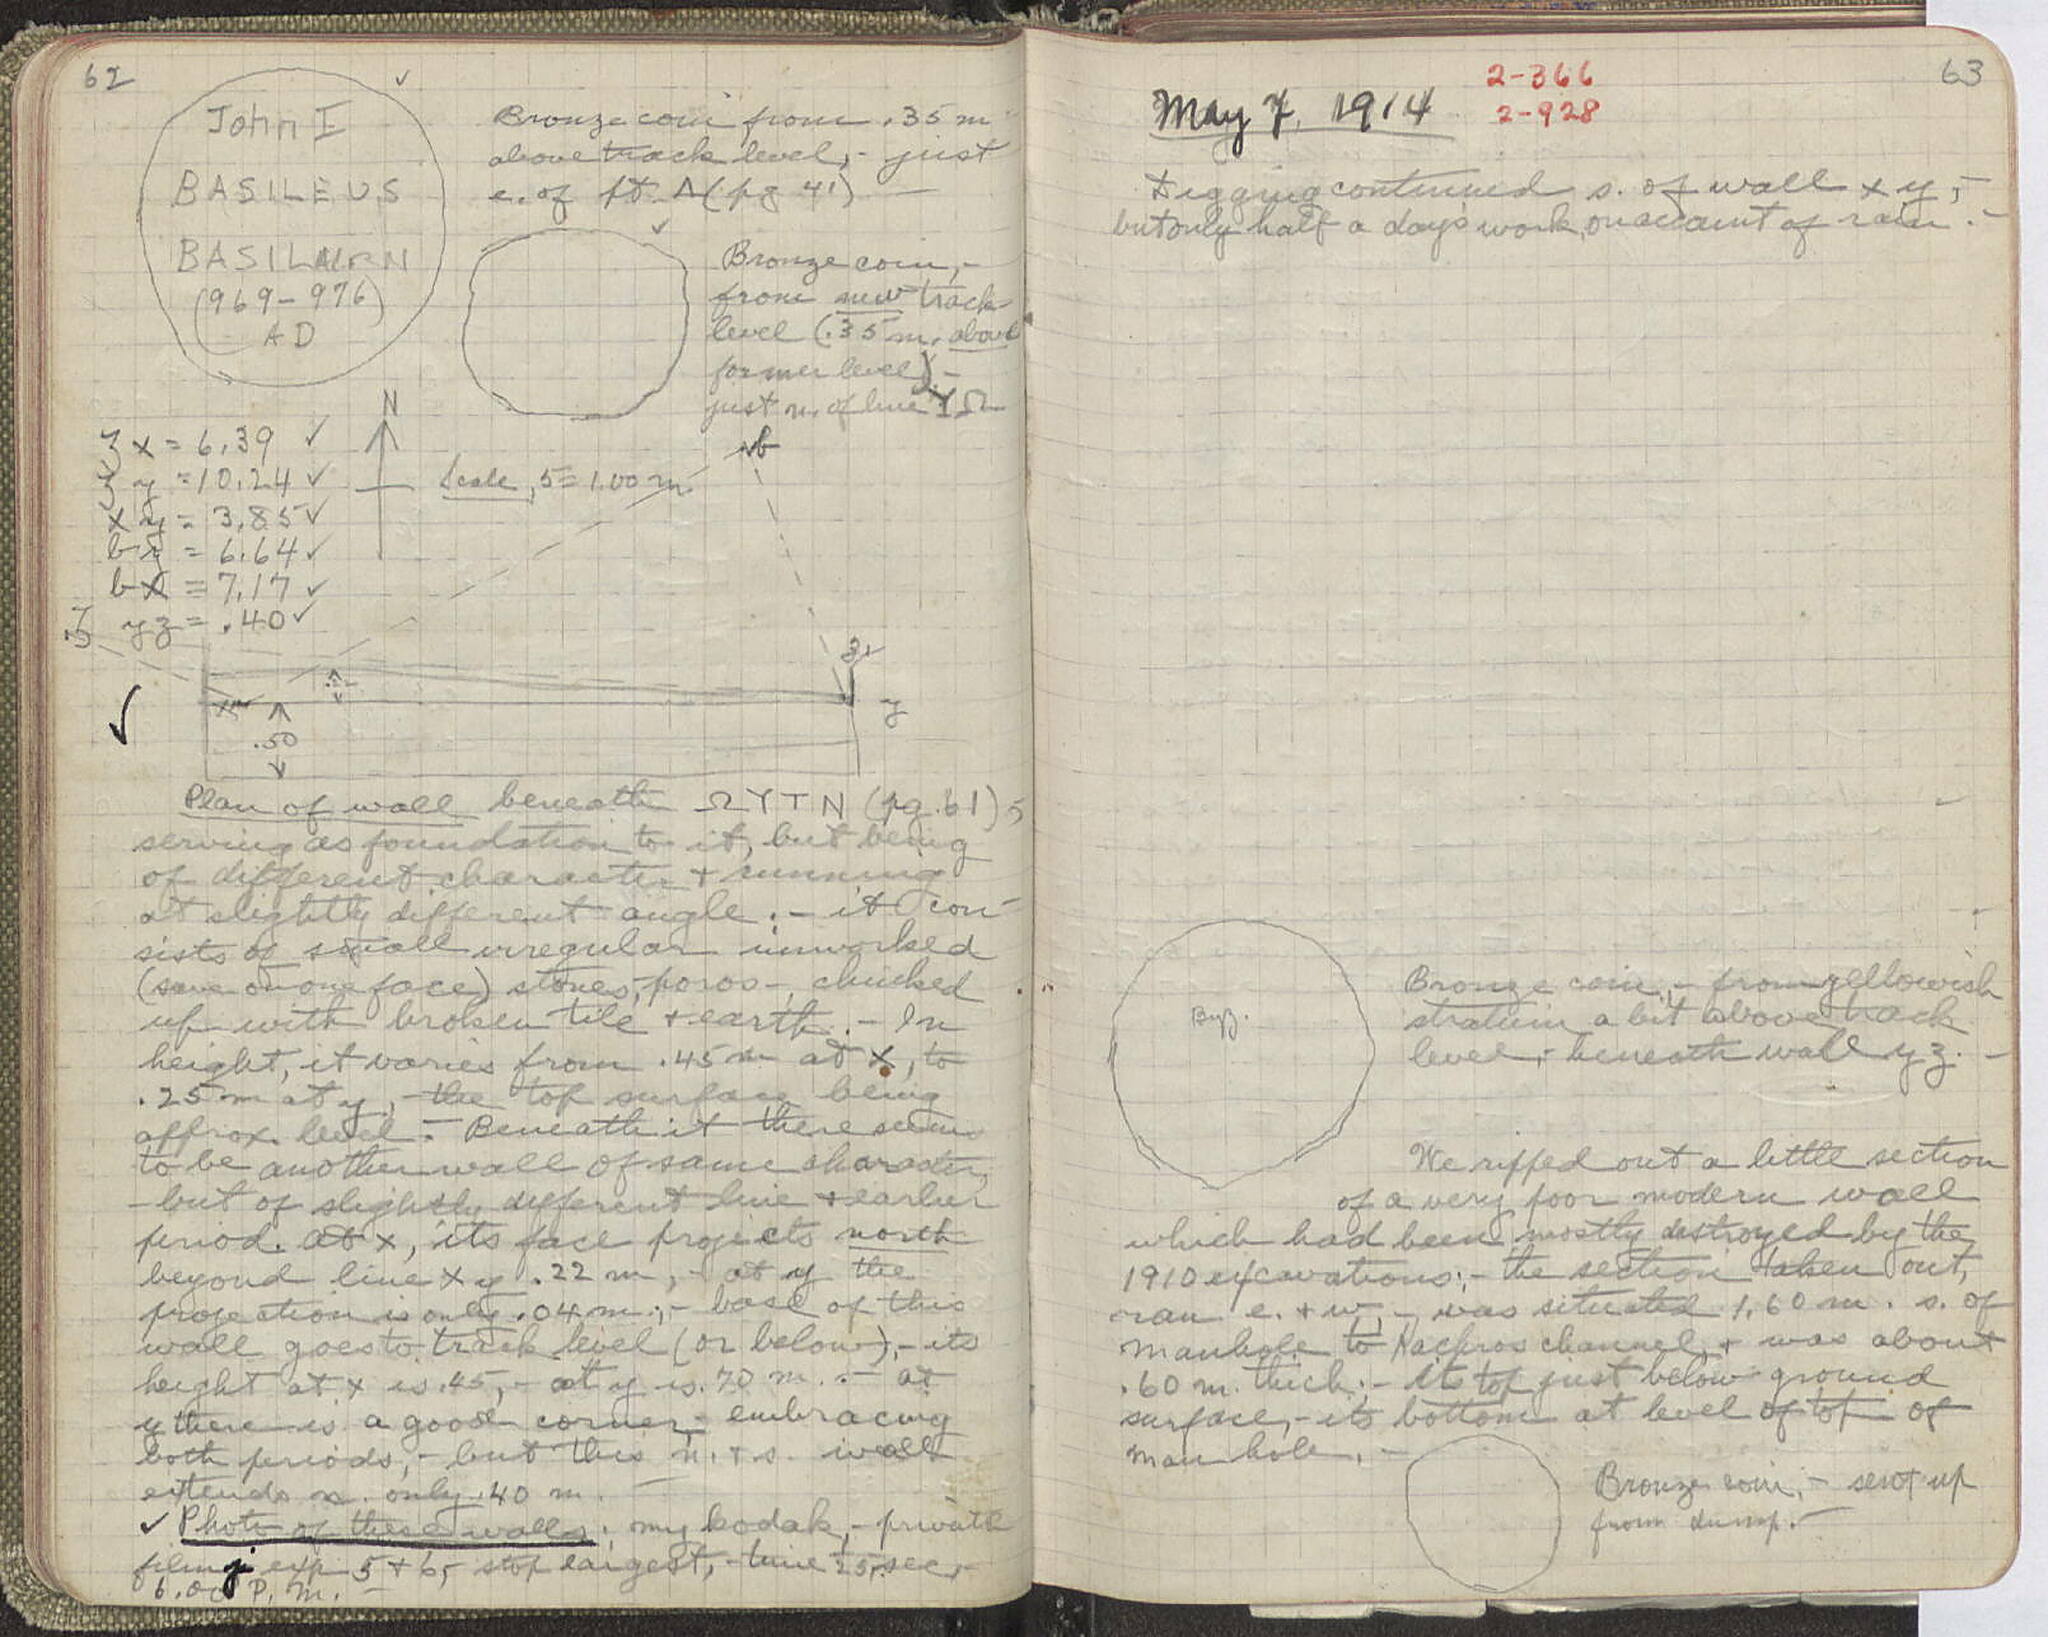 62
John I
BASILEUS
BASILAIRN
(969-976)
AD
Bronze coin from .35 m
above track level, - just
e. of pt. Λ (pg 41) —
Bronze coin, -
from new track
level (.35 m. above
former level) -
just n. of line ΥΩ
N
Scale, 5 = 1.00 m
x = 6.39 ✓
y = 10.24 ✓
xy = 3.85 ✓
= 6.64 ✓
bx = 7.17 ✓
yz = .40 ✓
b
z
x
y
.50
Plan of wall beneath ΩΥΤΝ (pg. 61),
serving as foundation to it, but being
of different character + running
at slightly different angle. - it con-
sists of small irregular unworked
(save on one face) stones, poros -, chinked
up with broken tile + earth. - In
height, it varies from .45 m at x, to
.25 m at y, - the top surface being
approx. level. - Beneath it there seems
to be another wall of same character,
- but of slightly different line + earlier
period. At x, its face projects north
beyond line xy .22 m, - at y the
projection is only .04 m; - base of this
wall goes to track level (or below), - its
height at x is .45, - at y is .70 m. - at
y there is a good corner, embracing
both periods, - but this n. + s. wall
extends n. only .40 m. —
✓ Photo of these walls: my kodak, - private
film j exp 5 + 6, stop largest, - time 25 sec, -
6.00 P.M. —
63
2-366
2-928
May 7, 1914
Digging continued s. of wall xy, -
but only half a day's work, on account of rain. -
Byz.
Bronze coin, - from yellowish
stratum a bit above track
level, - beneath wall yz. -
We ripped out a little section
of a very poor modern wall
which had been mostly destroyed by the
1910 excavations; - the section taken out,
ran e. + w, - was situated 1.60 m. s. of
manhole to channel, + was about
.60 m. thick; - its top just below ground
surface, - its bottom at level of top of
man hole. -
Bronze coin, - sent up
from dump. -